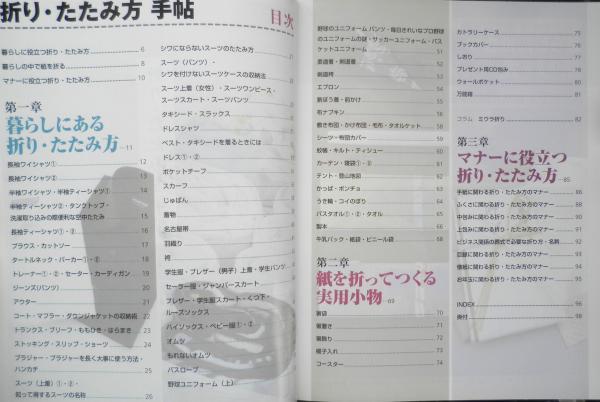 折り・たたみ方 手帖
目次
暮らしに役立つ折り・たたみ方 6
暮らしの中で紙を折る 8
マナーに役立つ折り・たたみ方 10
第一章
暮らしにある
折り・たたみ方 —11
長袖ワイシャツ① 12
長袖ワイシャツ② 13
半袖ワイシャツ・半袖ティーシャツ① 14
半袖ティーシャツ②・タンクトップ・
洗濯取り込みの簡便利な空中たたみ 15
長袖ティーシャツ①・② 16
ブラウス・カットソー 17
タートルネック・パーカー①・② 18
トレーナー①・②・セーター・カーディガン 19
ジーンズ(パンツ) 20
アウター 21
コート・マフラー・ダウンジャケットの収納術 22
トランクス・ブリーフ・ももひき・はらまき 23
ストッキング・スリップ・ショーツ 24
ブラジャー・ブラジャーを長く大事に使う方法・
ハンカチ 25
スーツ(上着)①・②・
知って得するスーツの名称 26
シワにならないスーツのたたみ方
スーツ(パンツ)・
シワを付けないスーツケースの収納法
スーツ上着(女性)・スーツワンピース・
スーツスカート・スーツパンツ
タキシード・スラックス
ドレスシャツ
ベスト・タキシードを着るときには
ドレス①・②
ポケットチーフ
スカーフ
じゅばん
着物
名古屋帯
羽織り
袴
学生服・ブレザー(男子)上着・学生パンツ
セーラー服・ジャンパースカート
ブレザー・学生服スカート・くつ下・
ルーズソックス
ハイソックス・ベビー服①・②
オムツ
もれないオムツ
バスローブ
野球ユニフォーム(上)
野球のユニフォーム パンツ・毎日きれいなプロ野球
のユニフォームの謎・サッカーユニフォーム・バス
ケットユニフォーム 51
柔道着・剣道着 52
剣道袴 53
エプロン 54
割ぽう着・前かけ 55
布ナプキン 56
敷き布団・かけ布団・毛布・タオルケット 58
シーツ・布団カバー 59
蚊帳・キルト・ティシュー 60
カーテン・寝袋①・② 61
テント・登山地図 62
かっぱ・ポンチョ 63
うき輪・コイのぼり 64
バスタオル①・②・タオル 65
製本 66
牛乳パック・紙袋・ビニール袋 68
第二章
紙を折ってつくる
実用小物 —69
箸袋 70
箸置き 71
箸飾り 72
楊子入れ 73
コースター 74
カトラリーケース 75
ブックカバー 76
しおり 77
プレゼント用CD包み 78
ウォールポケット 80
万能箱 81
コラム ミウラ折り 82
第三章
マナーに役立つ
折り・たたみ方 —85
手紙に関わる折り・たたみ方のマナー 86
ふくさに関わる折り・たたみ方のマナー 88
中包みに関わる折り・たたみ方のマナー 90
上包みに関わる折り・たたみ方のマナー 91
ビジネス関係の葬式で必要な折り方・名刺 92
回顧に関わる折り・たたみ方のマナー 93
懐紙に関わる折り・たたみ方のマナー 94
お年玉に関わる折り・たたみ方のマナー 95
INDEX 96
奥付 98